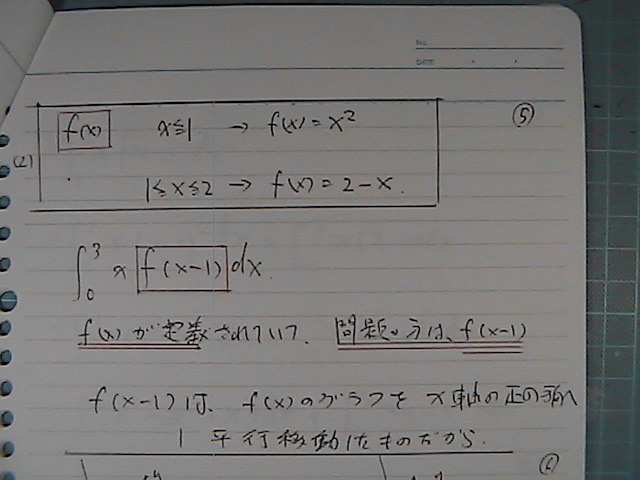 No.
DATE
⑤
(2) f(x) x≦1 → f(x) = x²
1≦x≦2 → f(x) = 2-x.
∫₀³ x f(x-1) dx.
f(x) が定数されていて、問題の方は、f(x-1)
f(x-1) は、f(x) のグラフを x軸の正の方向へ
1 平行移動したものだから.
⑥